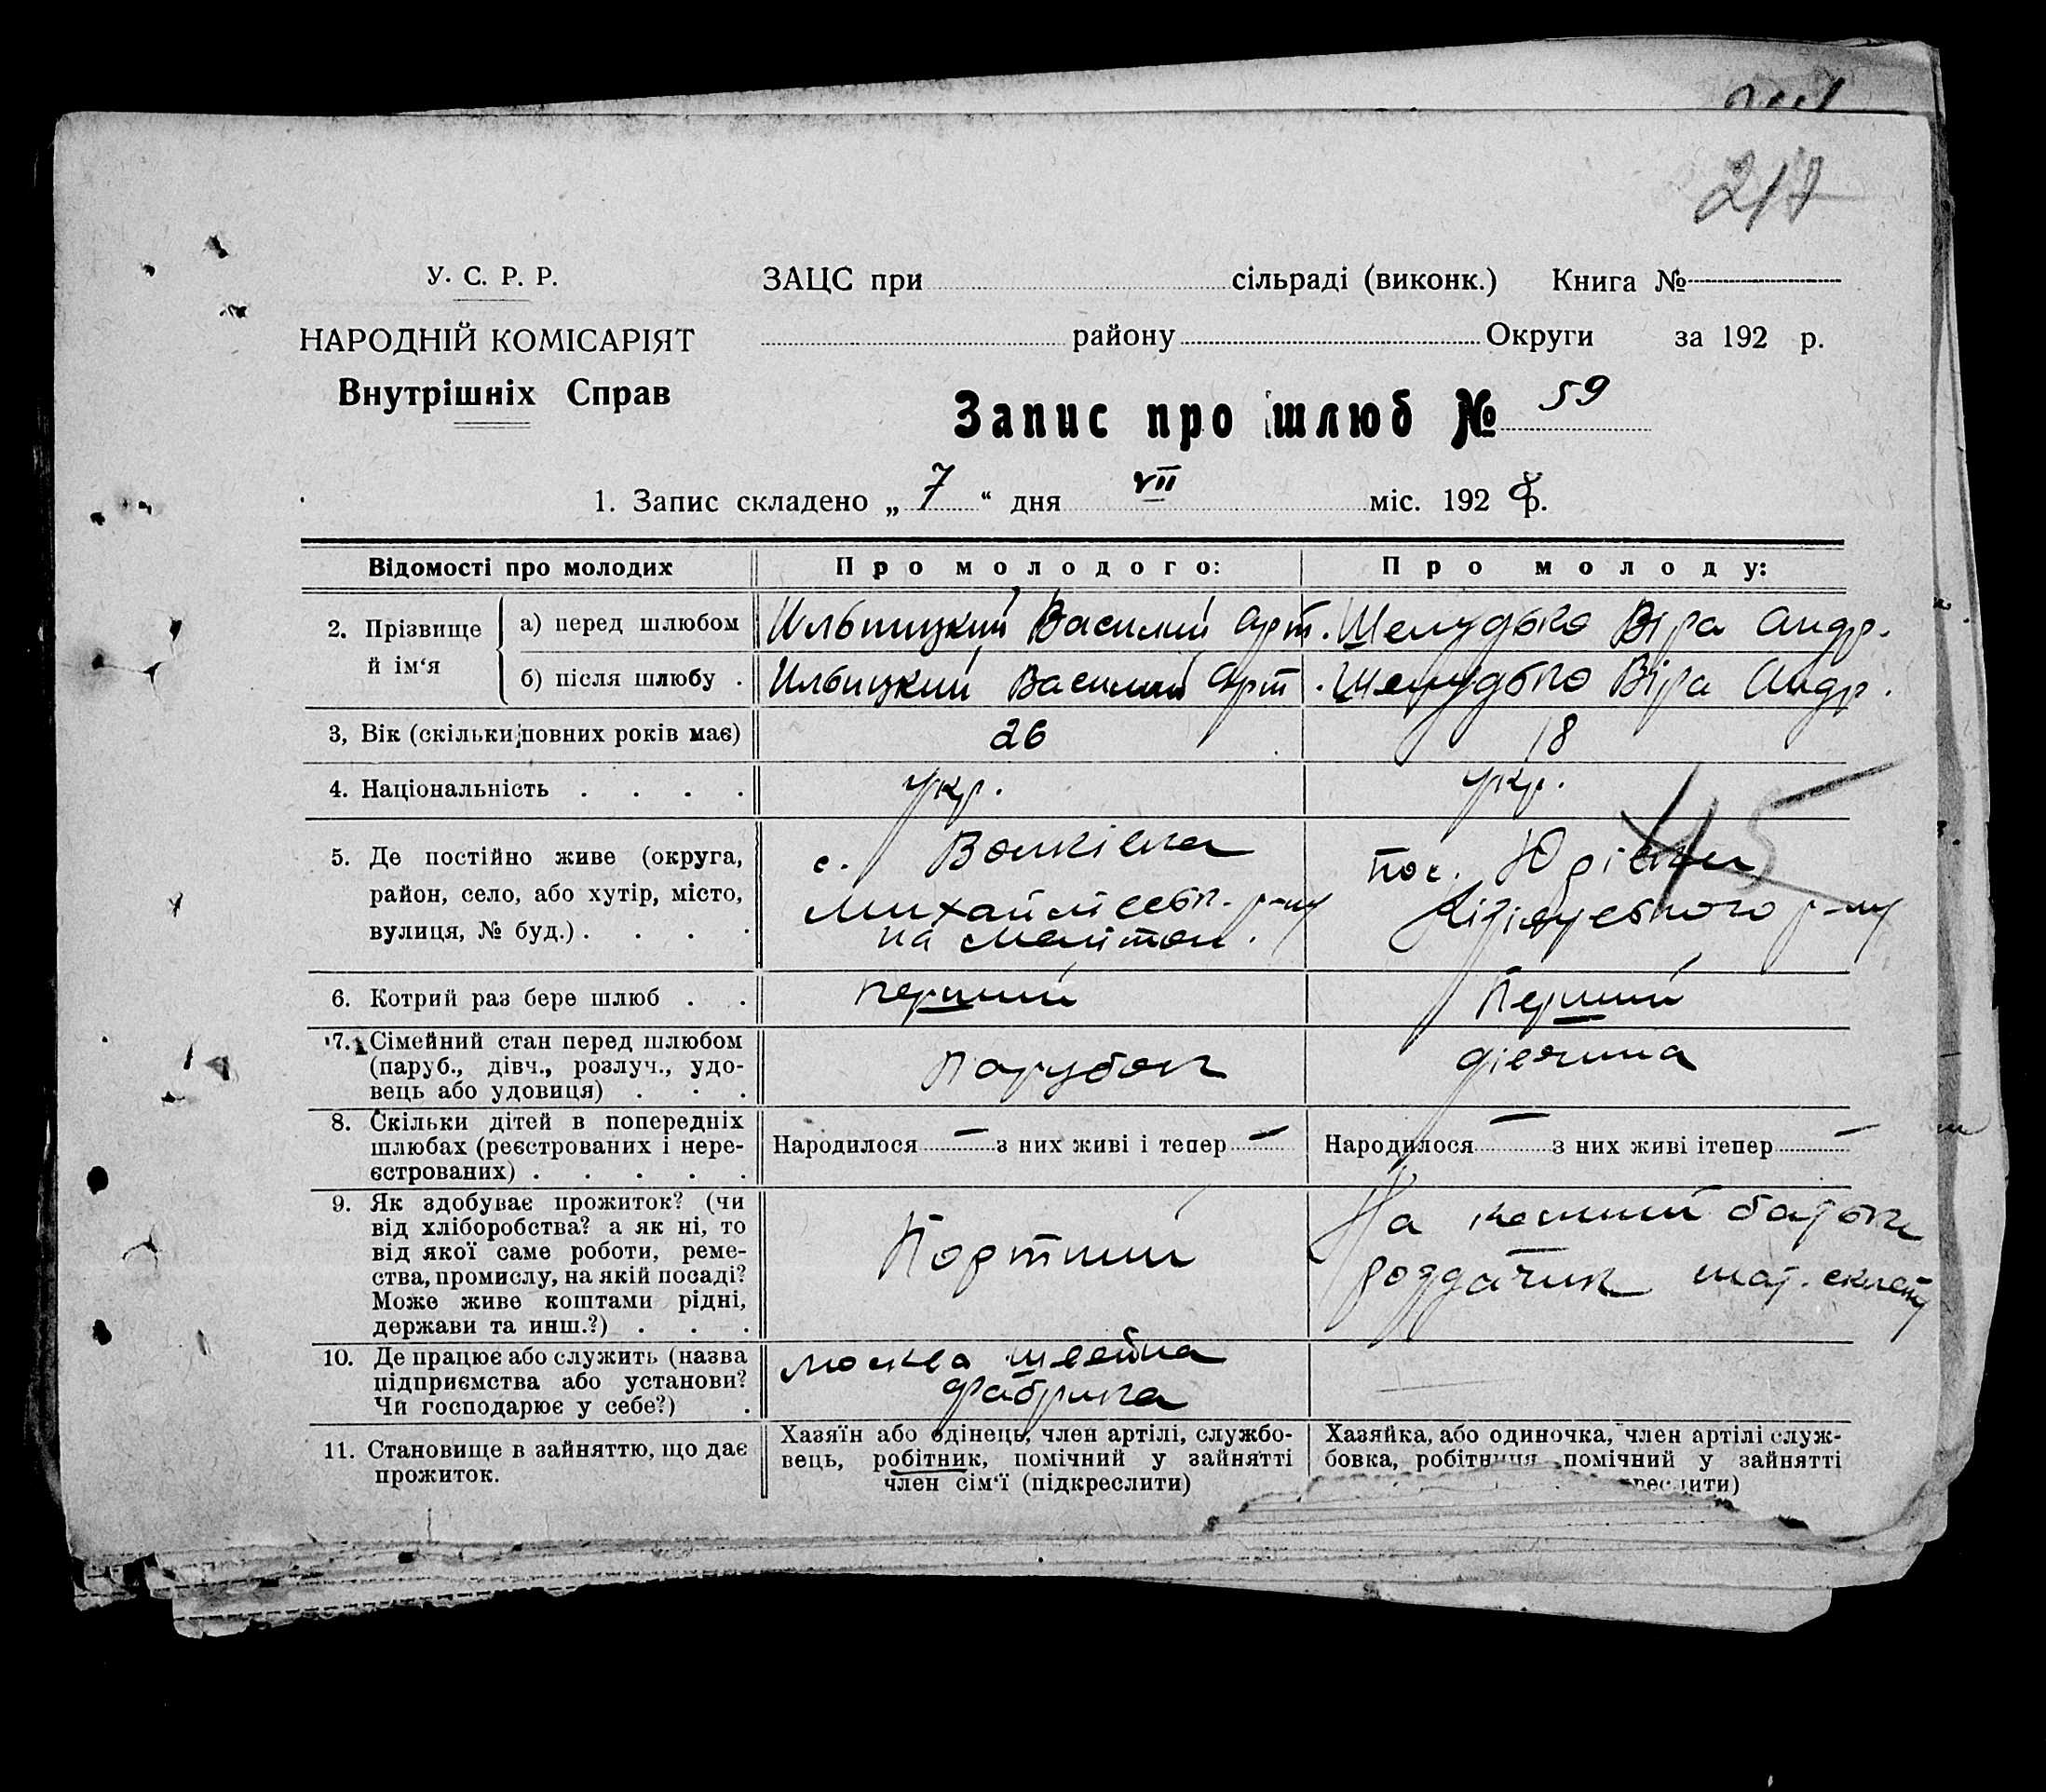 217
У. С. Р. Р.
НАРОДНІЙ КОМІСАРІЯТ
Внутрішніх Справ
ЗАЦС при сільраді (виконк.) Книга №
району Округи за 192 р.
Запис про шлюб № 59
1. Запис складено „ 7 “ дня VII міс. 192 8 р.
Відомості про молодих
Про молодого:
Про молоду:
2. Прізвище й ім‘я
а) перед шлюбом
Ильницкий Василий Арт.
Шелудько Віра Андр.
б) після шлюбу .
Ильницкий Василий Арт.
Шелудько Віра Андр.
3, Вік (скільки повних років має)
26
18
4. Національність . . . .
укр.
укр.
45
5. Де постійно живе (округа,
район, село, або хутір, місто,
вулиця, № буд.) . . . .
с. Волківка
р-ну
пос. Юрівки
р-ну
6. Котрий раз бере шлюб . .
перший
Перший
7. Сімейний стан перед шлюбом
(паруб., дівч., розлуч., удо-
вець або удовиця) . . .
Парубок
дівчина
8. Скільки дітей в попередніх
шлюбах (реєстрованих і нере-
єстрованих) . . . . .
Народилося — з них живі і тепер —
Народилося — з них живі ітепер —
9. Як здобуває прожиток? (чи
від хліборобства? а як ні, то
від якої саме роботи, реме-
ства, промислу, на якій посаді?
Може живе коштами рідні,
держави та инш.?) . . .
Портний
На батьки
роздатчик мат. складу
10. Де працює або служить (назва
підприємства або установи?
Чи господарює у себе?) .
москва швейна
фабрика
11. Становище в зайняттю, що дає
прожиток.
Хазяїн або одінець, член артілі, службо-
вець, робітник, помічний у зайнятті
член сім‘ї (підкреслити)
Хазяйка, або одиночка, член артілі служ-
бовка, робітниця помічний у зайнятті